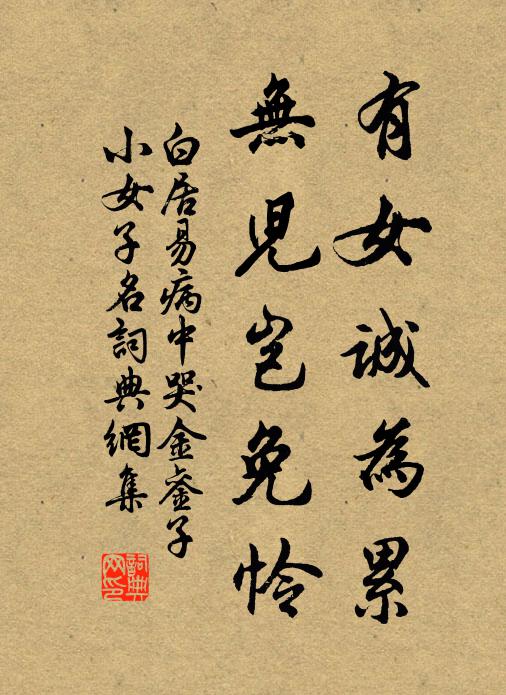 有女誠為累
無児豈免怜
白居易病中哭金銮子
小女子名詞典網集
詞典网印